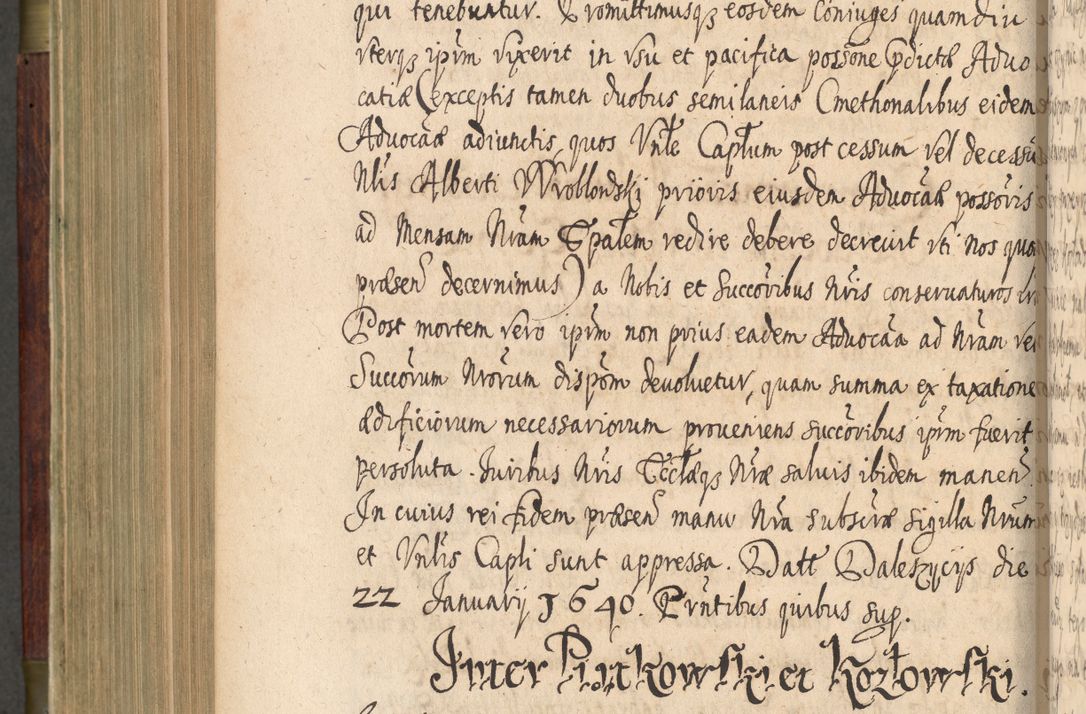 qui tenebuntur. Promittimusqꝫ eosdem Coniuges quamdiu
vterqꝫ ipr̃m vixerit in vsu et pacifica possone p̃dictæ Aduo
catiæ (exceptis tamen duobus semilaneis Cmethonalibus eidem
Aduocãæ adiunctis, quos Vnl̃e Capl̃um post cessum vel decessũ
Nl̃is Alberti Wroblowski prioris eiusdem Aduocãæ possõris
ad Mensam Nr̃am Epal̃em redire debere decreuit vti nos quoꝫ
præsen̄ decernimus) a Nobis et Succõribus Nr̃is conseruaturos
Post mortem vero ipr̃m non prius eadem Aduocãa ad Nr̃am vel
Succõrum Nrõrum dispõm deuoluetur, quam summa ex taxatione
ædificiorum necessariorum proueniens succõribus ipr̃m fuerit
persoluta. Iuribus Nr̃is Eccl̃æqꝫ Nr̃æ saluis ibidem manen̄.
In cuius rei fidem præsen̄ manu Nr̃a subscr̃æ sigilla Nr̃um
et Vnl̃is Capli sunt appressa. Datt Daleszycijs die
22 Januarij 1640. Pr̃ntibus quibus sup.
Inter Piutkowski et Kozłowski.